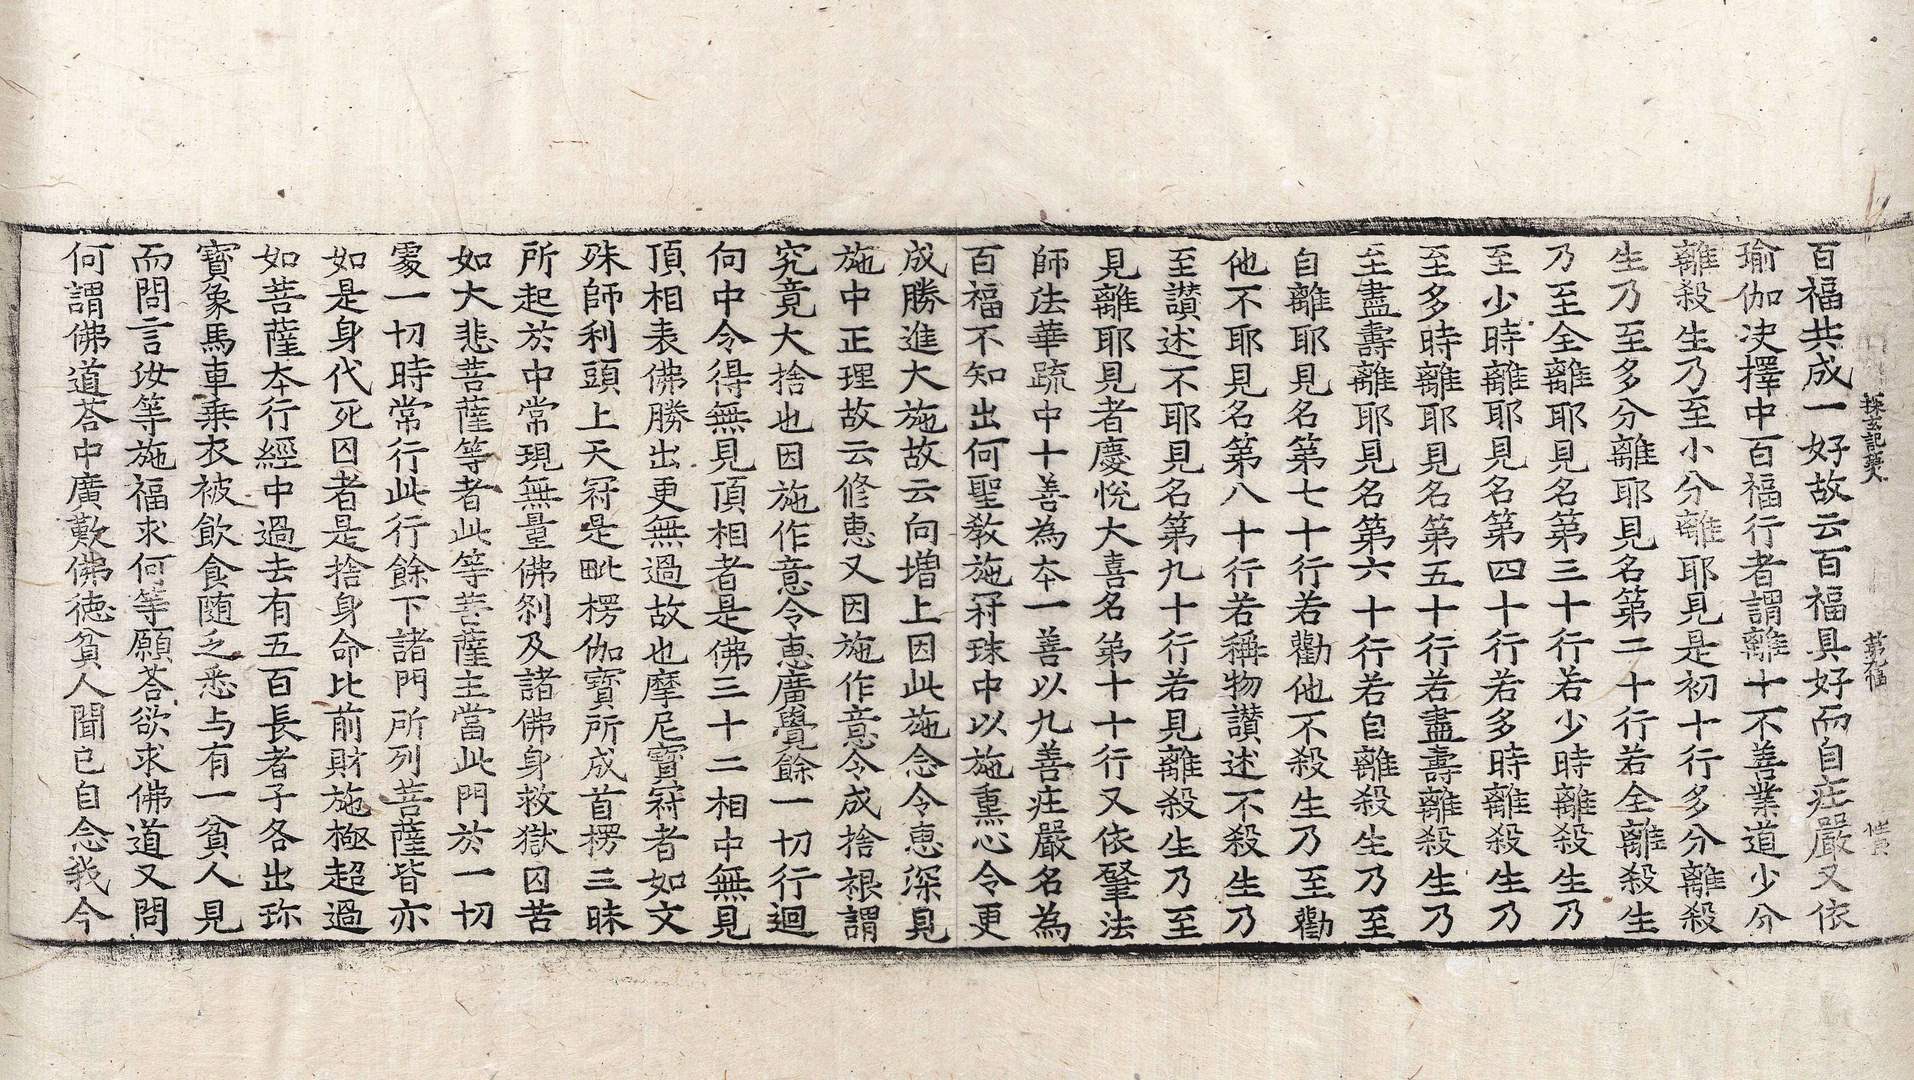 百福共成一好故云百福具好而自庄嚴又依
瑜伽决擇中百福行者謂離十不善業道少分
離殺生乃至小分離耶見是初十行多分離殺
生乃至多分離耶見名第二十行若全離殺生
乃至全離耶見名第三十行若少時離殺生乃
至少時離耶見名第四十行若多時離殺生乃
至多時離耶見名第五十行若盡壽離殺生乃
至盡壽離耶見名第六十行若自離殺生乃至
自離耶見名第七十行若勸他不殺生乃至勸
他不耶見名第八十行若稱物讃述不殺生乃
至讃述不耶見名第九十行若見離殺生乃至
見離耶見者慶悅大喜名第十十行又依肇法
師法華疏中十善為夲一善以九善庄嚴名為
百福不知出何聖教施冠珠中以施熏心令更
成勝進大施故云向增上因此施念令惠深見
施中正理故云修惠又因施作意令成捨根謂
究竟大捨也因施作意令惠廣覺餘一切行迴
向中令得無見頂相者是佛三十二相中無見
頂相表佛勝出更無過故也摩尼寶冠者如文
殊師利頭上天冠是毗楞伽寶所成首楞三昧
所起於中常現無量佛刹及諸佛身救獄囚苦
如大悲菩薩等者此等菩薩主當此門於一切
䖏一切時常行此行餘下諸門所列菩薩皆亦
如是身代死囚者是捨身命比前財施極超過
如菩薩夲行經中過去有五百長者子各出珎
寶象馬車乗衣被飲食随乏悉与有一貧人見
而問言汝等施福求何等願荅欲求佛道又問
何謂佛道荅中廣歎佛德貧人聞已自念我今